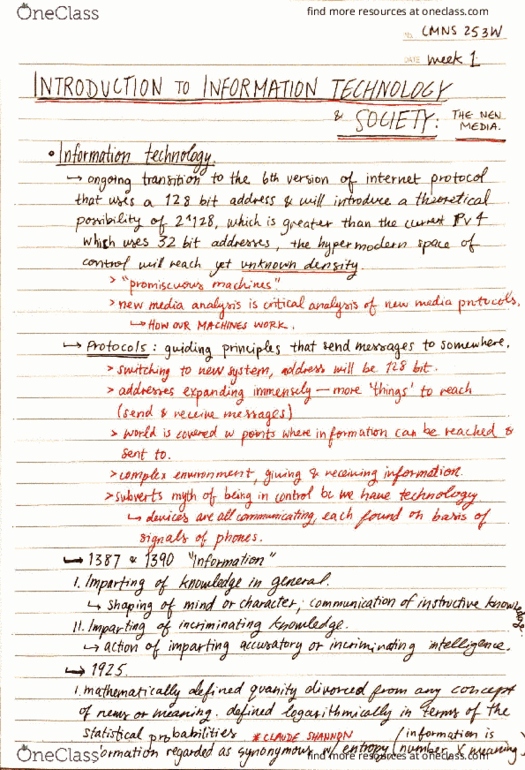 OneClass
find more resources at oneclass.com
NO. CMNS 253W
DATE week 1
INTRODUCTION TO INFORMATION TECHNOLOGY
& SOCIETY: THE NEW
MEDIA.
• Information technology.
↳ ongoing transition to the 6th version of internet protocol
that uses a 128 bit address & will introduce a theoretical
possibility of 2^128, which is greater than the current IPv4
which uses 32 bit addresses, the hypermodern space of
control will reach yet unknown density.
> "promiscuous machines"
> new media analysis is critical analysis of new media protocols.
↳ HOW OUR MACHINES WORK.
↳ Protocols: guiding principles that send messages to somewhere.
> switching to new system, address will be 128 bit.
> addresses expanding immensely — more 'things' to reach
(send & receive messages)
> world is covered w points where information can be reached &
sent to.
> complex environment, giving & receiving information.
> subverts myth of being in control bc we have technology
↳ devices are all communicating, each found on basis of
signals of phones.
↳ 1387 & 1390 "Information"
I. Imparting of knowledge in general.
↳ shaping of mind or character; communication of instructive knowledge.
II. Imparting of incriminating knowledge.
↳ action of imparting accusatory or incriminating intelligence.
↳ 1925.
I. mathematically defined quanity divorced from any concept
of news or meaning. defined logarithmically in terms of the
statistical probabilities * CLAUDE SHANNON / information is
ormation regarded as synonymous w/ entropy (number x meaning)
OneClass
find more resources at oneclass.com